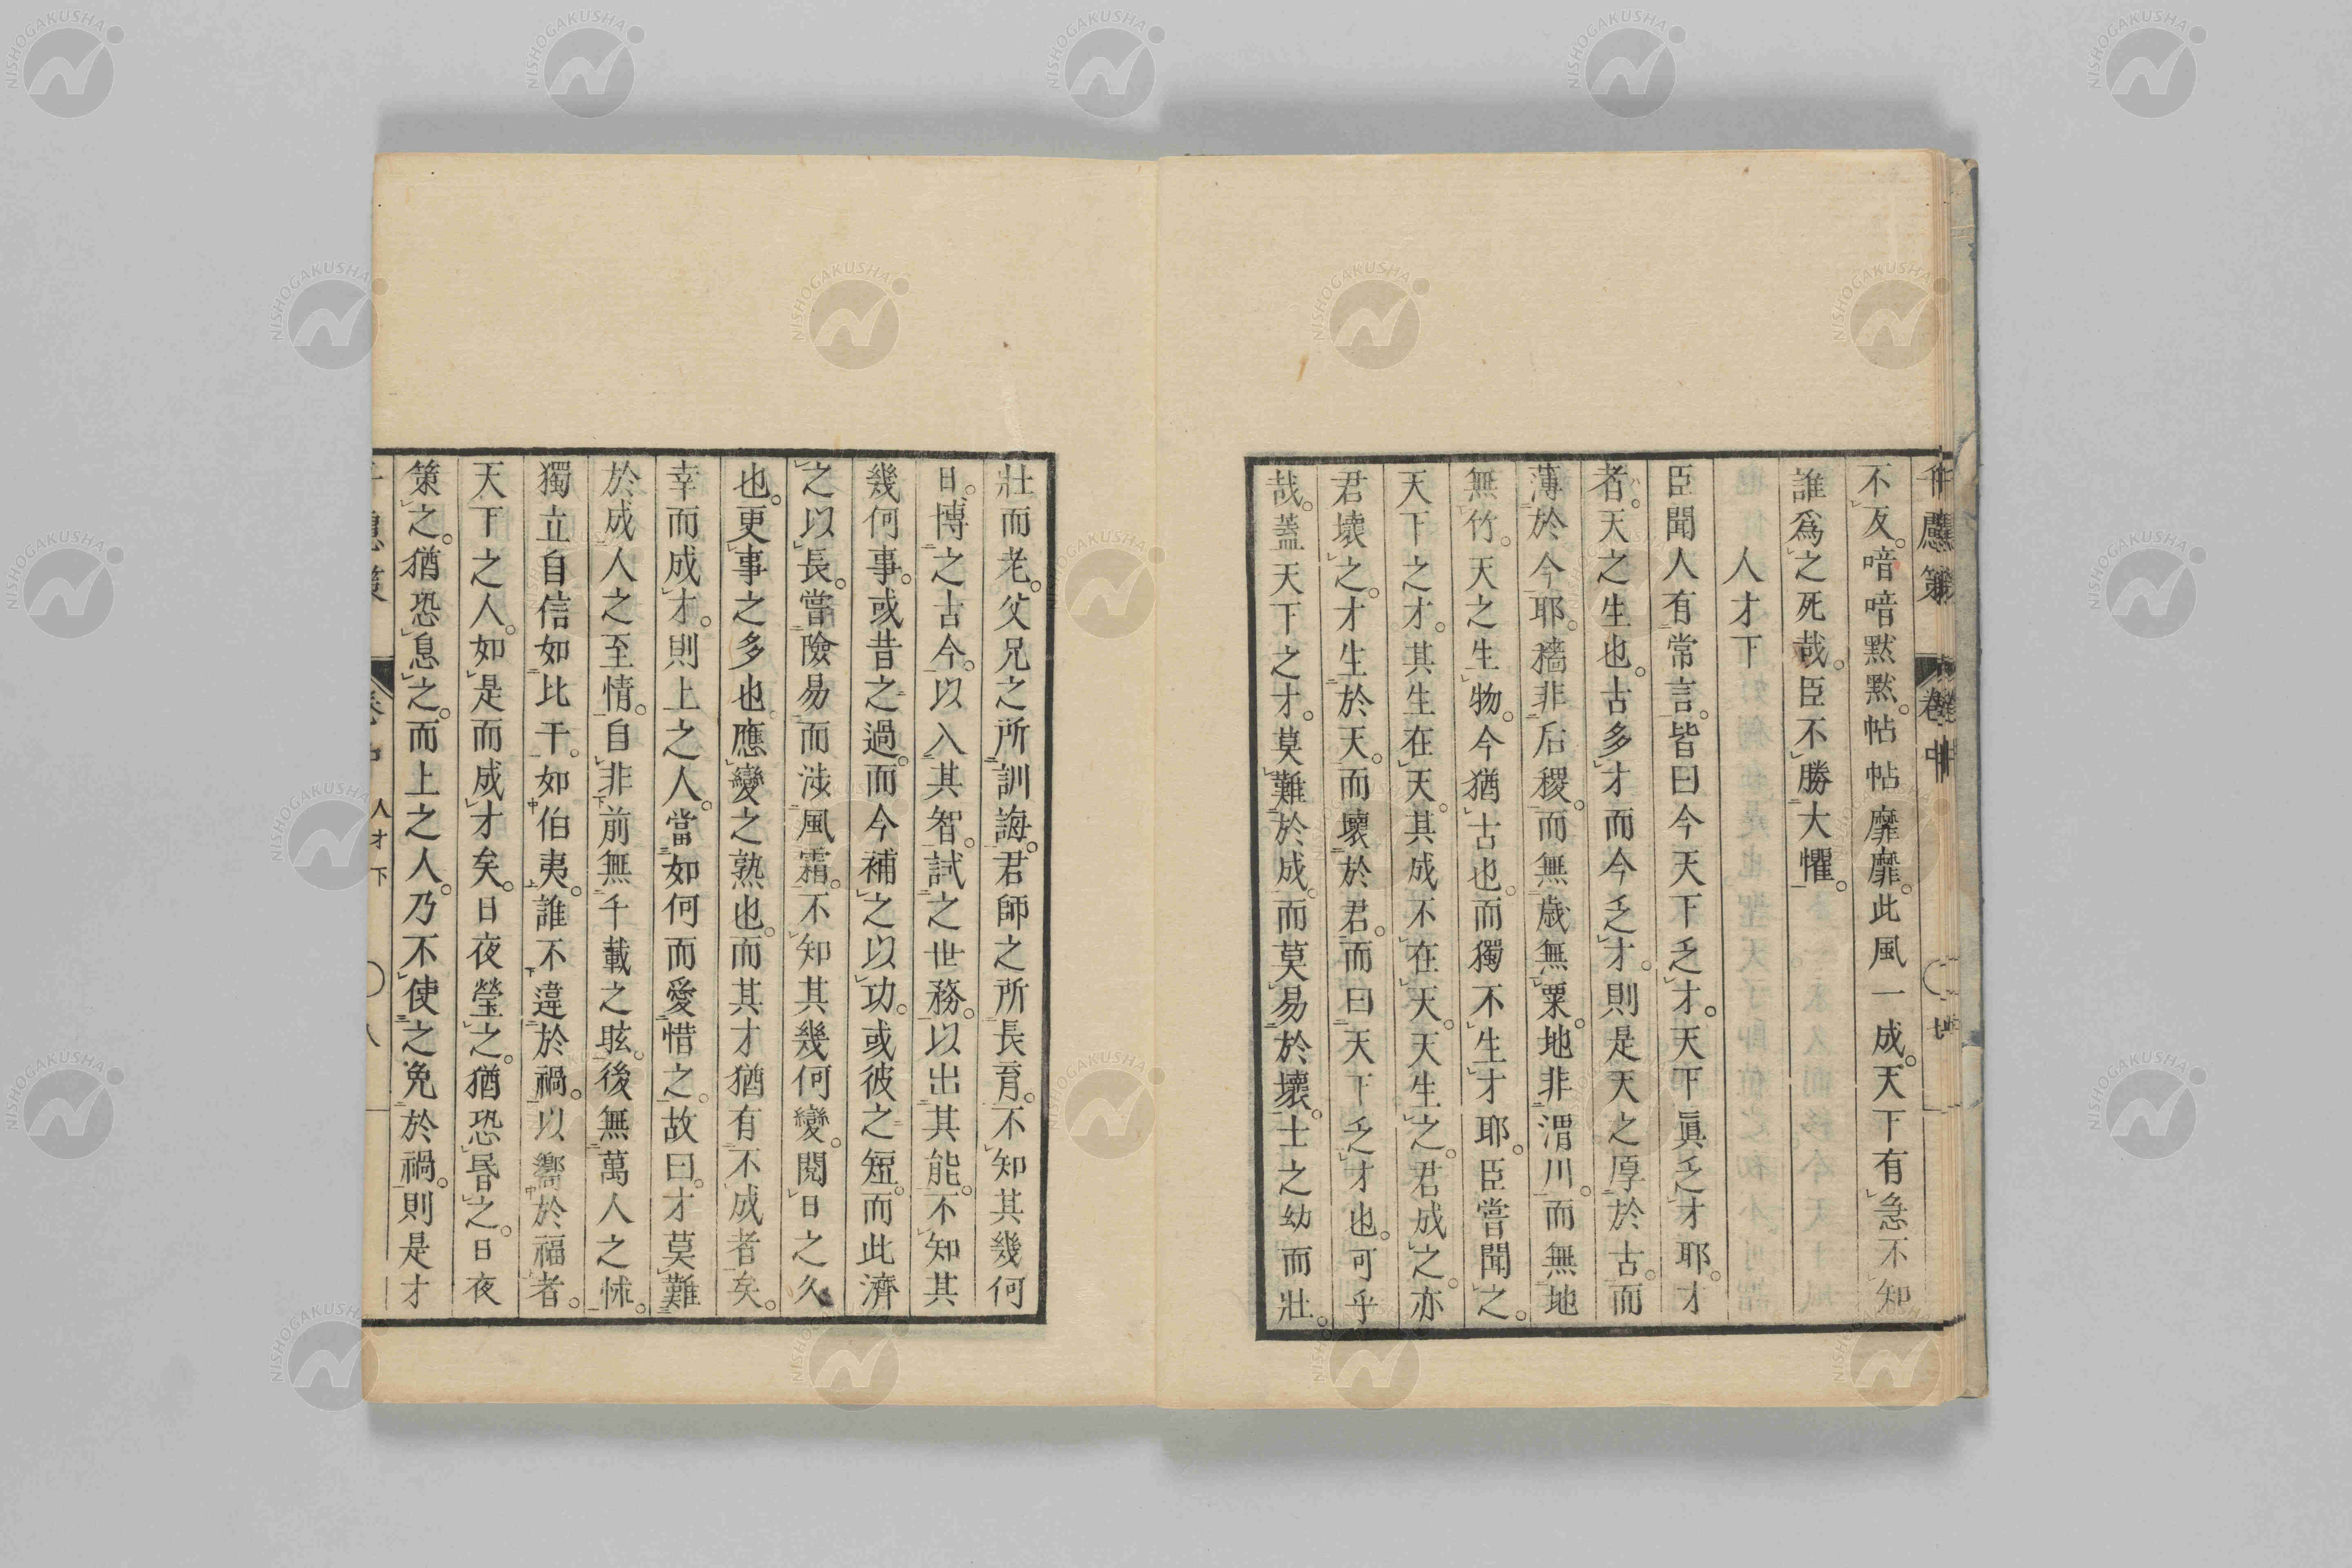 不反。喑喑默默。帖帖靡靡。此風一成。天下有急不知
誰爲之死哉。臣不勝大懼。
人才下
臣聞人有常言。皆曰今天下乏才。天下眞乏才耶。才
者。天之生也。古多才而今乏才。則是天之厚於古。而
薄於今耶。穡非后稷。而無歳無粟。地非渭川。而無地
無竹。天之生物。今猶古也。而獨不生才耶。臣嘗聞之。
天下之才。其生在天。其成不在天。天生之。君成之。亦
君壊之。才生於天。而壊於君。而曰天下乏才也。可乎
哉。蓋天下之才。莫難於成。而莫易於壊。士之幼而壯。
壯而老。父兄之所訓誨。君師之所長育。不知其幾何
日。博之古今。以入其智。試之世務。以出其能。不知其
幾何事。或昔之過。而今補之以功。或彼之短。而此濟
之以長。當險易而渉風霜。不知其幾何變。閲日之久
也。更事之多也。應變之熟也。而其才猶有不成者矣。
幸而成才。則上之人。當如何而愛惜之。故曰。才莫難
於成。人之至情。自非前無千載之眩。後無萬人之怵。
獨立自信如比干。如伯夷。誰不違於禍。以嚮於福者。
天下之人。如是而成才矣。日夜瑩之。猶恐昏之。日夜
策之。猶恐息之。而上之人。乃不使之免於禍。則是才
卷中 人才下 八
NISHOGAKUSHA